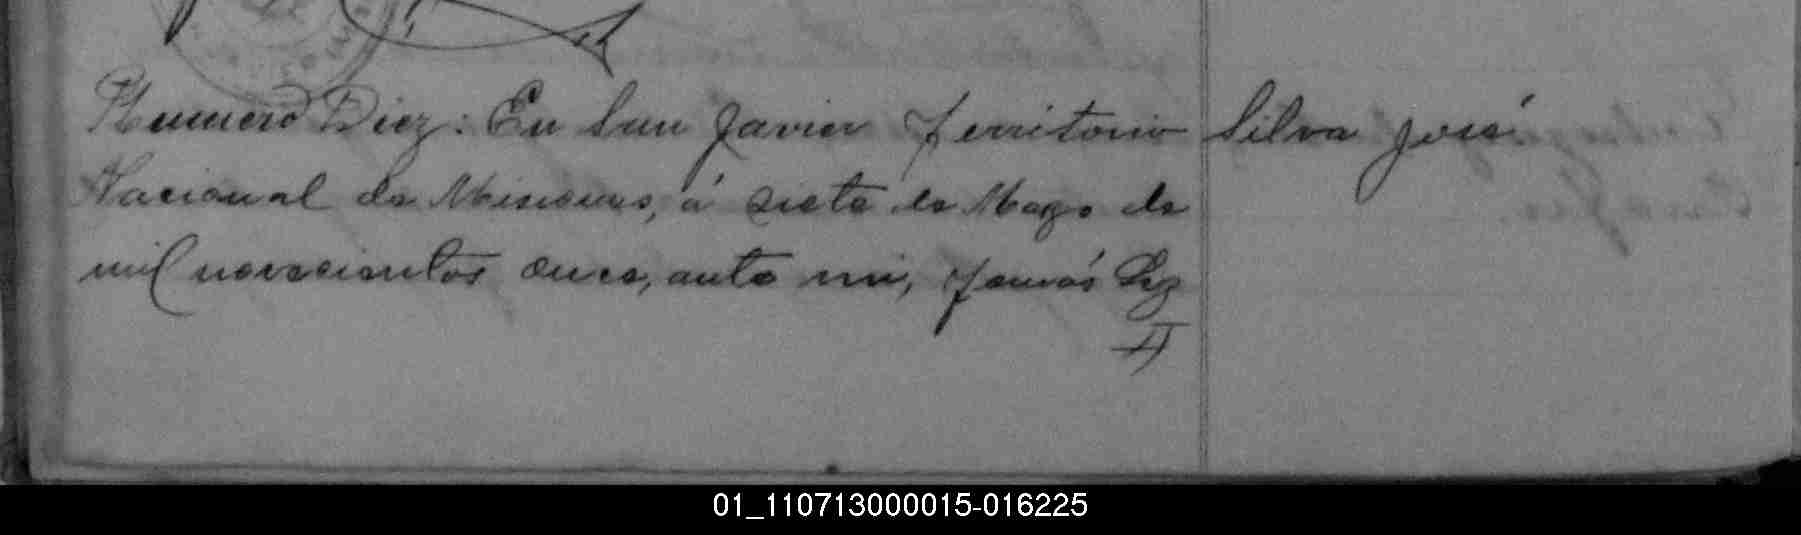 Numero Diez: En San Javier Territorio
Nacional de Misiones, á siete de Mayo de
mil novecientos once, ante mi, Tomás
Silva José
01_110713000015-016225